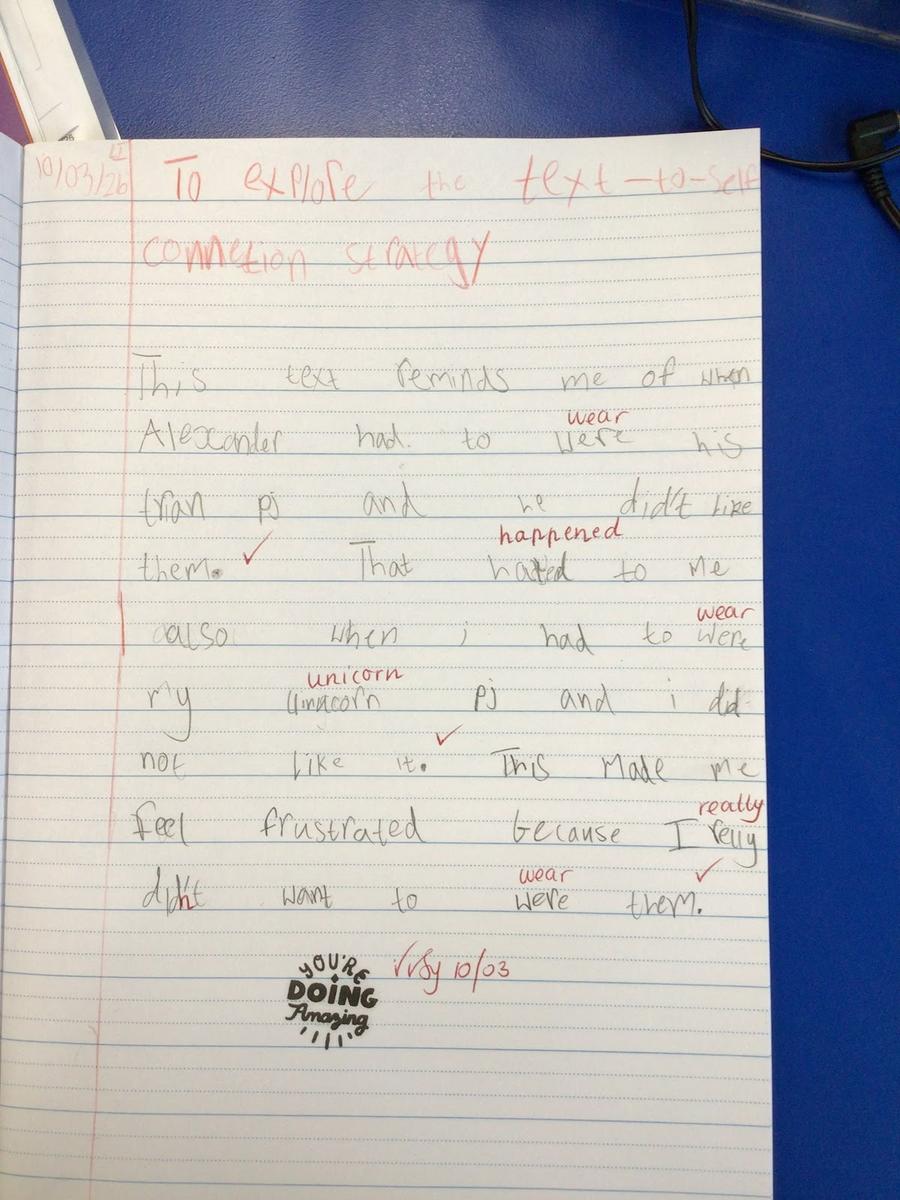 10/03/26 LI To explore the text-to-self
connetion strategy
This text reminds me of when
wear
Alexander had. to were his
trian pj and he did't like
happened
them. ✓ That hated to me
wear
also when i had to were
unicorn
my Unacorn pj and i did
✓
not like it. This made me
really
feel frustrated because I relly
wear ✓
didn't want to were them.
YOU'RE
DOING
Amazing
10/03